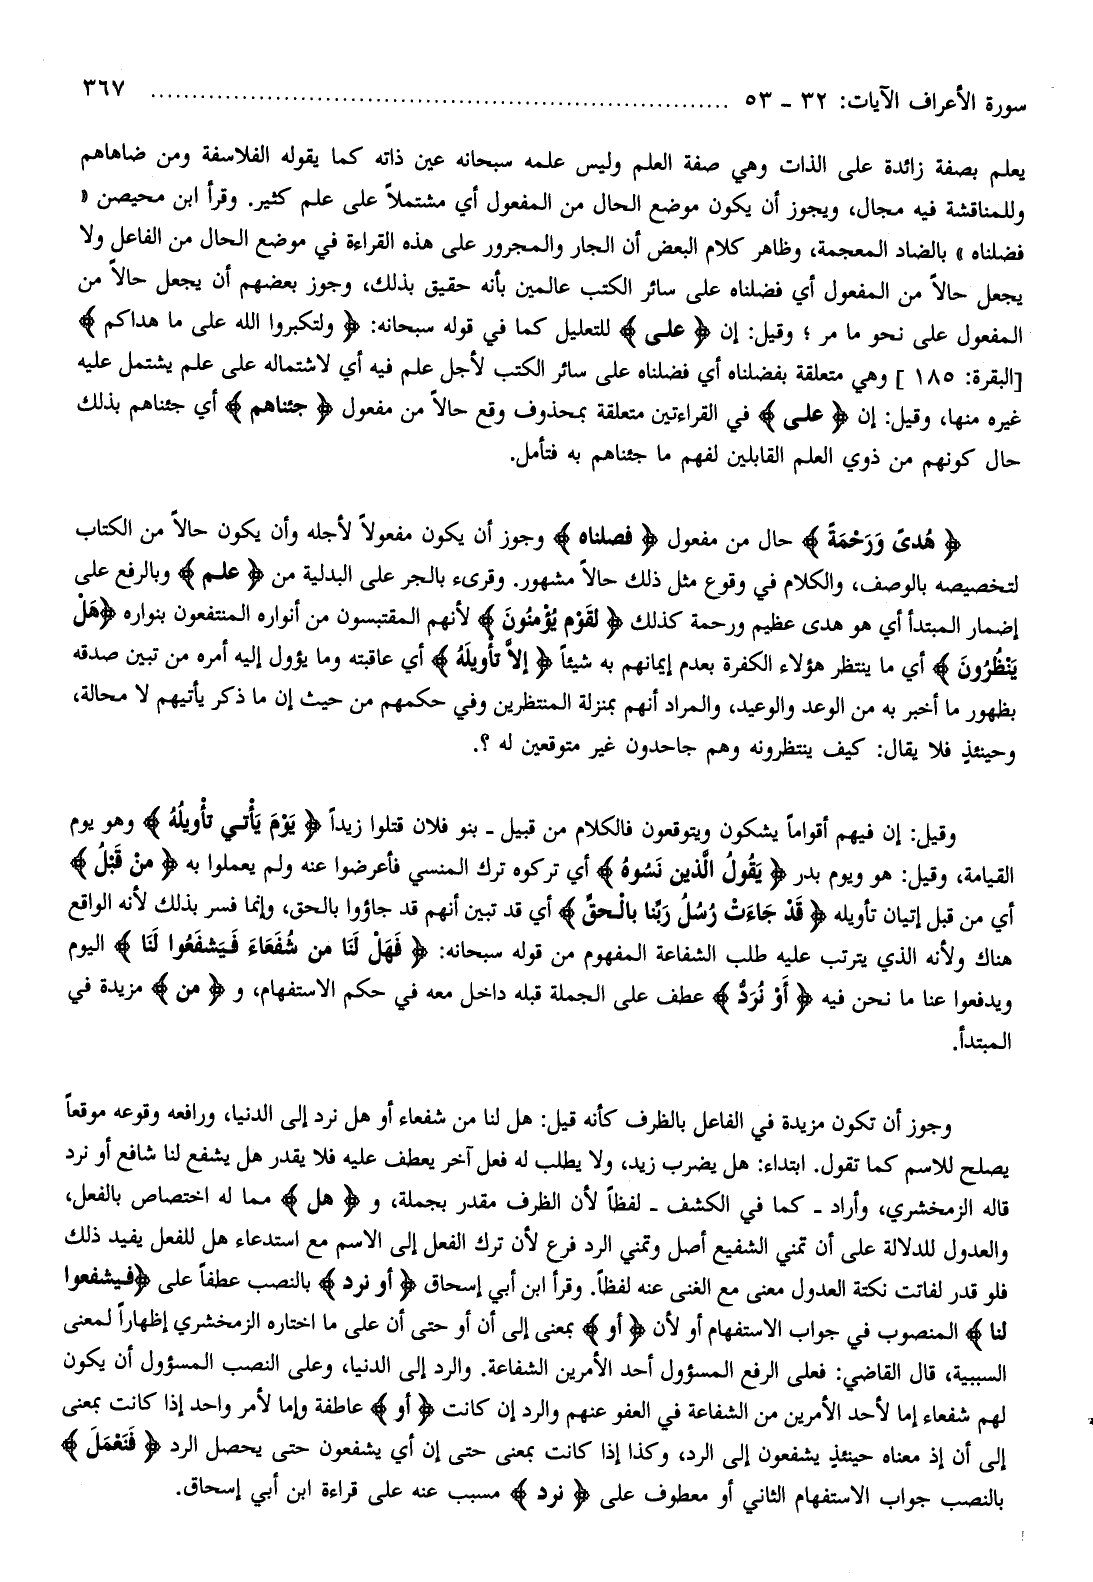 سورة الأعراف الآيات: ٣٢ ـ ٥٣ ........................................................................ ٣٦٧
يعلم بصفة زائدة على الذات وهي صفة العلم وليس علمه سبحانه عين ذاته كما يقوله الفلاسفة ومن ضاهاهم
وللمناقشة فيه مجال، ويجوز أن يكون موضع الحال من المفعول أي مشتملاً على علم كثير. وقرأ ابن محيصن «
فضلناه » بالضاد المعجمة، وظاهر كلام البعض أن الجار والمجرور على هذه القراءة في موضع الحال من الفاعل ولا
يجعل حالاً من المفعول أي فضلناه على سائر الكتب عالمين بأنه حقيق بذلك، وجوز بعضهم أن يجعل حالاً من
المفعول على نحو ما مر ؛ وقيل: إن ﴿ على ﴾ للتعليل كما في قوله سبحانه: ﴿ ولتكبروا الله على ما هداكم ﴾
[البقرة: ١٨٥ ] وهي متعلقة بفضلناه أي فضلناه على سائر الكتب لأجل علم فيه أي لاشتماله على علم يشتمل عليه
غيره منها، وقيل: إن ﴿ على ﴾ في القراءتين متعلقة بمحذوف وقع حالاً من مفعول ﴿ جئناهم ﴾ أي جئناهم بذلك
حال كونهم من ذوي العلم القابلين لفهم ما جئناهم به فتأمل.
﴿ هُدىً وَرَحْمَةً ﴾ حال من مفعول ﴿ فصلناه ﴾ وجوز أن يكون مفعولاً لأجله وأن يكون حالاً من الكتاب
لتخصيصه بالوصف، والكلام في وقوع مثل ذلك حالاً مشهور. وقرىء بالجر على البدلية من ﴿ علم ﴾ وبالرفع على
إضمار المبتدأ أي هو هدى عظيم ورحمة كذلك ﴿ لقَوْم يُؤْمنُونَ ﴾ لأنهم المقتبسون من أنواره المنتفعون بنواره ﴿هَلْ
يَنْظُرُونَ ﴾ أي ما ينتظر هؤلاء الكفرة بعدم إيمانهم به شيئاً ﴿ إلاَّ تأويلَهُ ﴾ أي عاقبته وما يؤول إليه أمره من تبين صدقه
بظهور ما أخبر به من الوعد والوعيد، والمراد أنهم بمنزلة المنتظرين وفي حكمهم من حيث إن ما ذكر يأتيهم لا محالة،
وحينئذٍ فلا يقال: كيف ينتظرونه وهم جاحدون غير متوقعين له ؟.
وقيل: إن فيهم أقواماً يشكون ويتوقعون فالكلام من قبيل ـ بنو فلان قتلوا زيداً ﴿ يَوْمَ يَأْتي تأْويلُهُ ﴾ وهو يوم
القيامة، وقيل: هو ويوم بدر ﴿ يَقُولُ الَّذين نَسُوهُ ﴾ أي تركوه ترك المنسي فأعرضوا عنه ولم يعملوا به ﴿ منْ قَبْلُ ﴾
أي من قبل إتيان تأويله ﴿ قَدْ جَاءَتْ رُسُلُ رَبِّنا بالْحقِّ ﴾ أي قد تبين أنهم قد جاؤوا بالحق، وإنما فسر بذلك لأنه الواقع
هناك ولأنه الذي يترتب عليه طلب الشفاعة المفهوم من قوله سبحانه: ﴿ فَهَلْ لَنَا من شُفَعَاءَ فَيَشفَعُوا لَنَا ﴾ اليوم
ويدفعوا عنا ما نحن فيه ﴿ أَوْ نُرَدُّ ﴾ عطف على الجملة قبله داخل معه في حكم الاستفهام، و ﴿ من ﴾ مزيدة في
المبتدأ.
وجوز أن تكون مزيدة في الفاعل بالظرف كأنه قيل: هل لنا من شفعاء أو هل نرد إلى الدنيا، ورافعه وقوعه موقعاً
يصلح للاسم كما تقول. ابتداء: هل يضرب زيد، ولا يطلب له فعل آخر يعطف عليه فلا يقدر هل يشفع لنا شافع أو نرد
قاله الزمخشري، وأراد ـ كما في الكشف ـ لفظاً لأن الظرف مقدر بجملة، و ﴿ هل ﴾ مما له اختصاص بالفعل،
والعدول للدلالة على أن تمني الشفيع أصل وتمني الرد فرع لأن ترك الفعل إلى الاسم مع استدعاء هل للفعل يفيد ذلك
فلو قدر لفاتت نكتة العدول معنى مع الغنى عنه لفظاً. وقرأ ابن أبي إسحاق ﴿ أو نرد ﴾ بالنصب عطفاً على ﴿فيشفعوا
لنا ﴾ المنصوب في جواب الاستفهام أو لأن ﴿ أو ﴾ بمعنى إلى أن أو حتى أن على ما اختاره الزمخشري إظهاراً لمعنى
السببية، قال القاضي: فعلى الرفع المسؤول أحد الأمرين الشفاعة. والرد إلى الدنيا، وعلى النصب المسؤول أن يكون
لهم شفعاء إما لأحد الأمرين من الشفاعة في العفو عنهم والرد إن كانت ﴿ أو ﴾ عاطفة وإما لأمر واحد إذا كانت بمعنى
إلى أن إذ معناه حينئذٍ يشفعون إلى الرد، وكذا إذا كانت بمعنى حتى إن أي يشفعون حتى يحصل الرد ﴿ فَنَعْمَلَ ﴾
بالنصب جواب الاستفهام الثاني أو معطوف على ﴿ نرد ﴾ مسبب عنه على قراءة ابن أبي إسحاق.